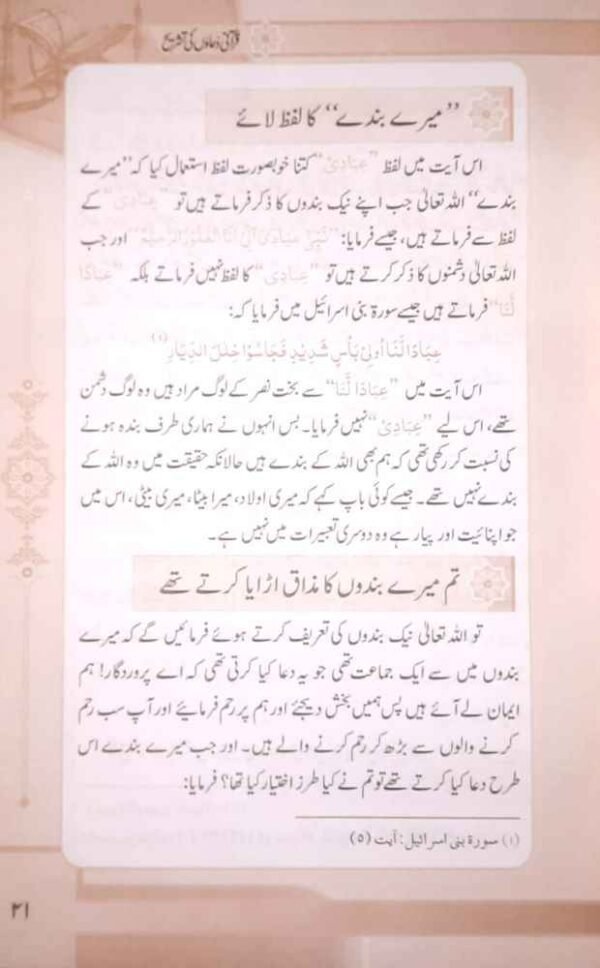 قرآنی دعاؤں کی تشریح
”میرے بندے“ کا لفظ لائے
اس آیت میں لفظ ”عِبَادِیْ“ کتنا خوبصورت لفظ استعمال کیا کہ ”میرے
بندے“ اللہ تعالیٰ جب اپنے نیک بندوں کا ذکر فرماتے ہیں تو ”عِبَادِیْ“ کے
لفظ سے فرماتے ہیں، جیسے فرمایا: ”نَبِّئْ عِبَادِیْٓ اَنِّیْٓ اَنَا الْغَفُوْرُ الرَّحِیْمُ“ اور جب
اللہ تعالیٰ دشمنوں کا ذکر کرتے ہیں تو ”عِبَادِیْ“ کا لفظ نہیں فرماتے بلکہ ”عِبَادًا
لَّنَا“ فرماتے ہیں جیسے سورۃ بنی اسرائیل میں فرمایا کہ:
عِبَادًا لَّنَآ اُولِیْ بَاْسٍ شَدِیْدٍ فَجَاسُوْا خِلٰلَ الدِّیَارِ (۱)
اس آیت میں ”عِبَادًا لَّنَا“ سے بخت نصر کے لوگ مراد ہیں وہ لوگ دشمن
تھے، اس لیے ”عِبَادِیْ“ نہیں فرمایا۔ بس انہوں نے ہماری طرف بندہ ہونے
کی نسبت کر رکھی تھی کہ ہم بھی اللہ کے بندے ہیں حالانکہ حقیقت میں وہ اللہ کے
بندے نہیں تھے۔ جیسے کوئی باپ کہے کہ میری اولاد، میرا بیٹا، میری بیٹی، اس میں
جو اپنائیت اور پیار ہے وہ دوسری تعبیرات میں نہیں ہے۔
تم میرے بندوں کا مذاق اڑایا کرتے تھے
تو اللہ تعالیٰ نیک بندوں کی تعریف کرتے ہوئے فرمائیں گے کہ میرے
بندوں میں سے ایک جماعت تھی جو یہ دعا کیا کرتی تھی کہ اے پروردگار! ہم
ایمان لے آئے ہیں پس ہمیں بخش دیجئے اور ہم پر رحم فرمائیے اور آپ سب رحم
کرنے والوں سے بڑھ کر رحم کرنے والے ہیں۔ اور جب میرے بندے اس
طرح دعا کیا کرتے تھے تو تم نے کیا طرز اختیار کیا تھا؟ فرمایا:
(۱) سورۃ بنی اسرائیل: آیت (۵)
۲۱